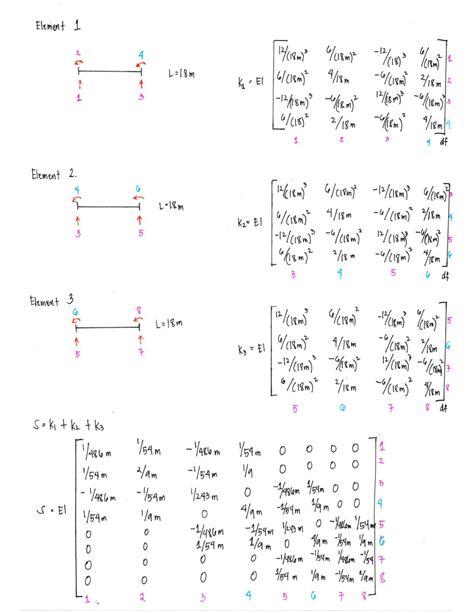 Element 1
2 4
L=18m
1 3
K₁ = EI
12/(18m)³ 6/(18m)² -12/(18m)³ 6/(18m)² 1
6/(18m)² 4/18m -6/(18m)² 2/18m 2
-12/(18m)³ -6/(18m)² 12/(18m)³ -6/(18m)² 3
6/(18)² 2/18m -6/(18m)² 4/18m 4
1 2 3 4 df
Element 2.
4 6
L=18m
3 5
K₂= EI
12/(18m)³ 6/(18m)² -12/(18m)³ 6/(18m)² 3
6/(18m)² 4/18m -6/(18m)² 2/18m 4
-12/(18m)³ -6/(18m)² 12/(18m)³ -6/(18m)² 5
6/(18m)² 2/18m -6/(18m)² 4/18m 6
3 4 5 6 df
Element 3
6 8
L=18m
5 7
K₃ = EI
12/(18m)³ 6/(18m)² -12/(18m)³ 6/(18m)² 5
6/(18m)² 4/18m -6/(18m)² 2/18m 6
-12/(18m)³ -6/(18m)² 12/(18m)³ -6/(18m)² 7
6/(18m)² 2/18m -6/(18m)² 4/18m 8
5 6 7 8 df
S = K₁ + K₂ + K₃
S = EI
1/486m 1/54m -1/486m 1/54m 0 0 0 0 1
1/54m 2/9m -1/54m 1/9 0 0 0 0 2
-1/486m -1/54m 1/243m 0 -1/486m 1/54m 0 0 3
1/54m 1/9m 0 4/9m -1/54m 1/9m 0 0 4
0 0 -1/486m -1/54m 1/243m 0 -1/486m 1/54m 5
0 0 1/54m 1/9m 0 4/9m -1/54m 1/9m 6
0 0 0 0 -1/486m -1/54m 1/486m -1/54 7
0 0 0 0 1/54m 1/9m -1/54m 2/9m 8
1 2 3 4 5 6 7 8